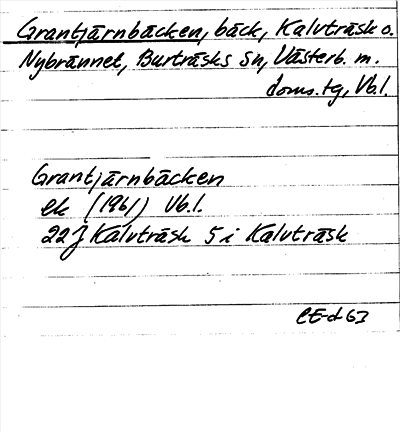 Grantjärnbäcken, bäck, Kalvträsk o.
Nybrännet, Burträsks sn, Västerb. m.
doms.tg, Vb.l.
Grantjärnbäcken
ek (1961) Vb.l.
22J Kalvträsk 5 i Kalvträsk